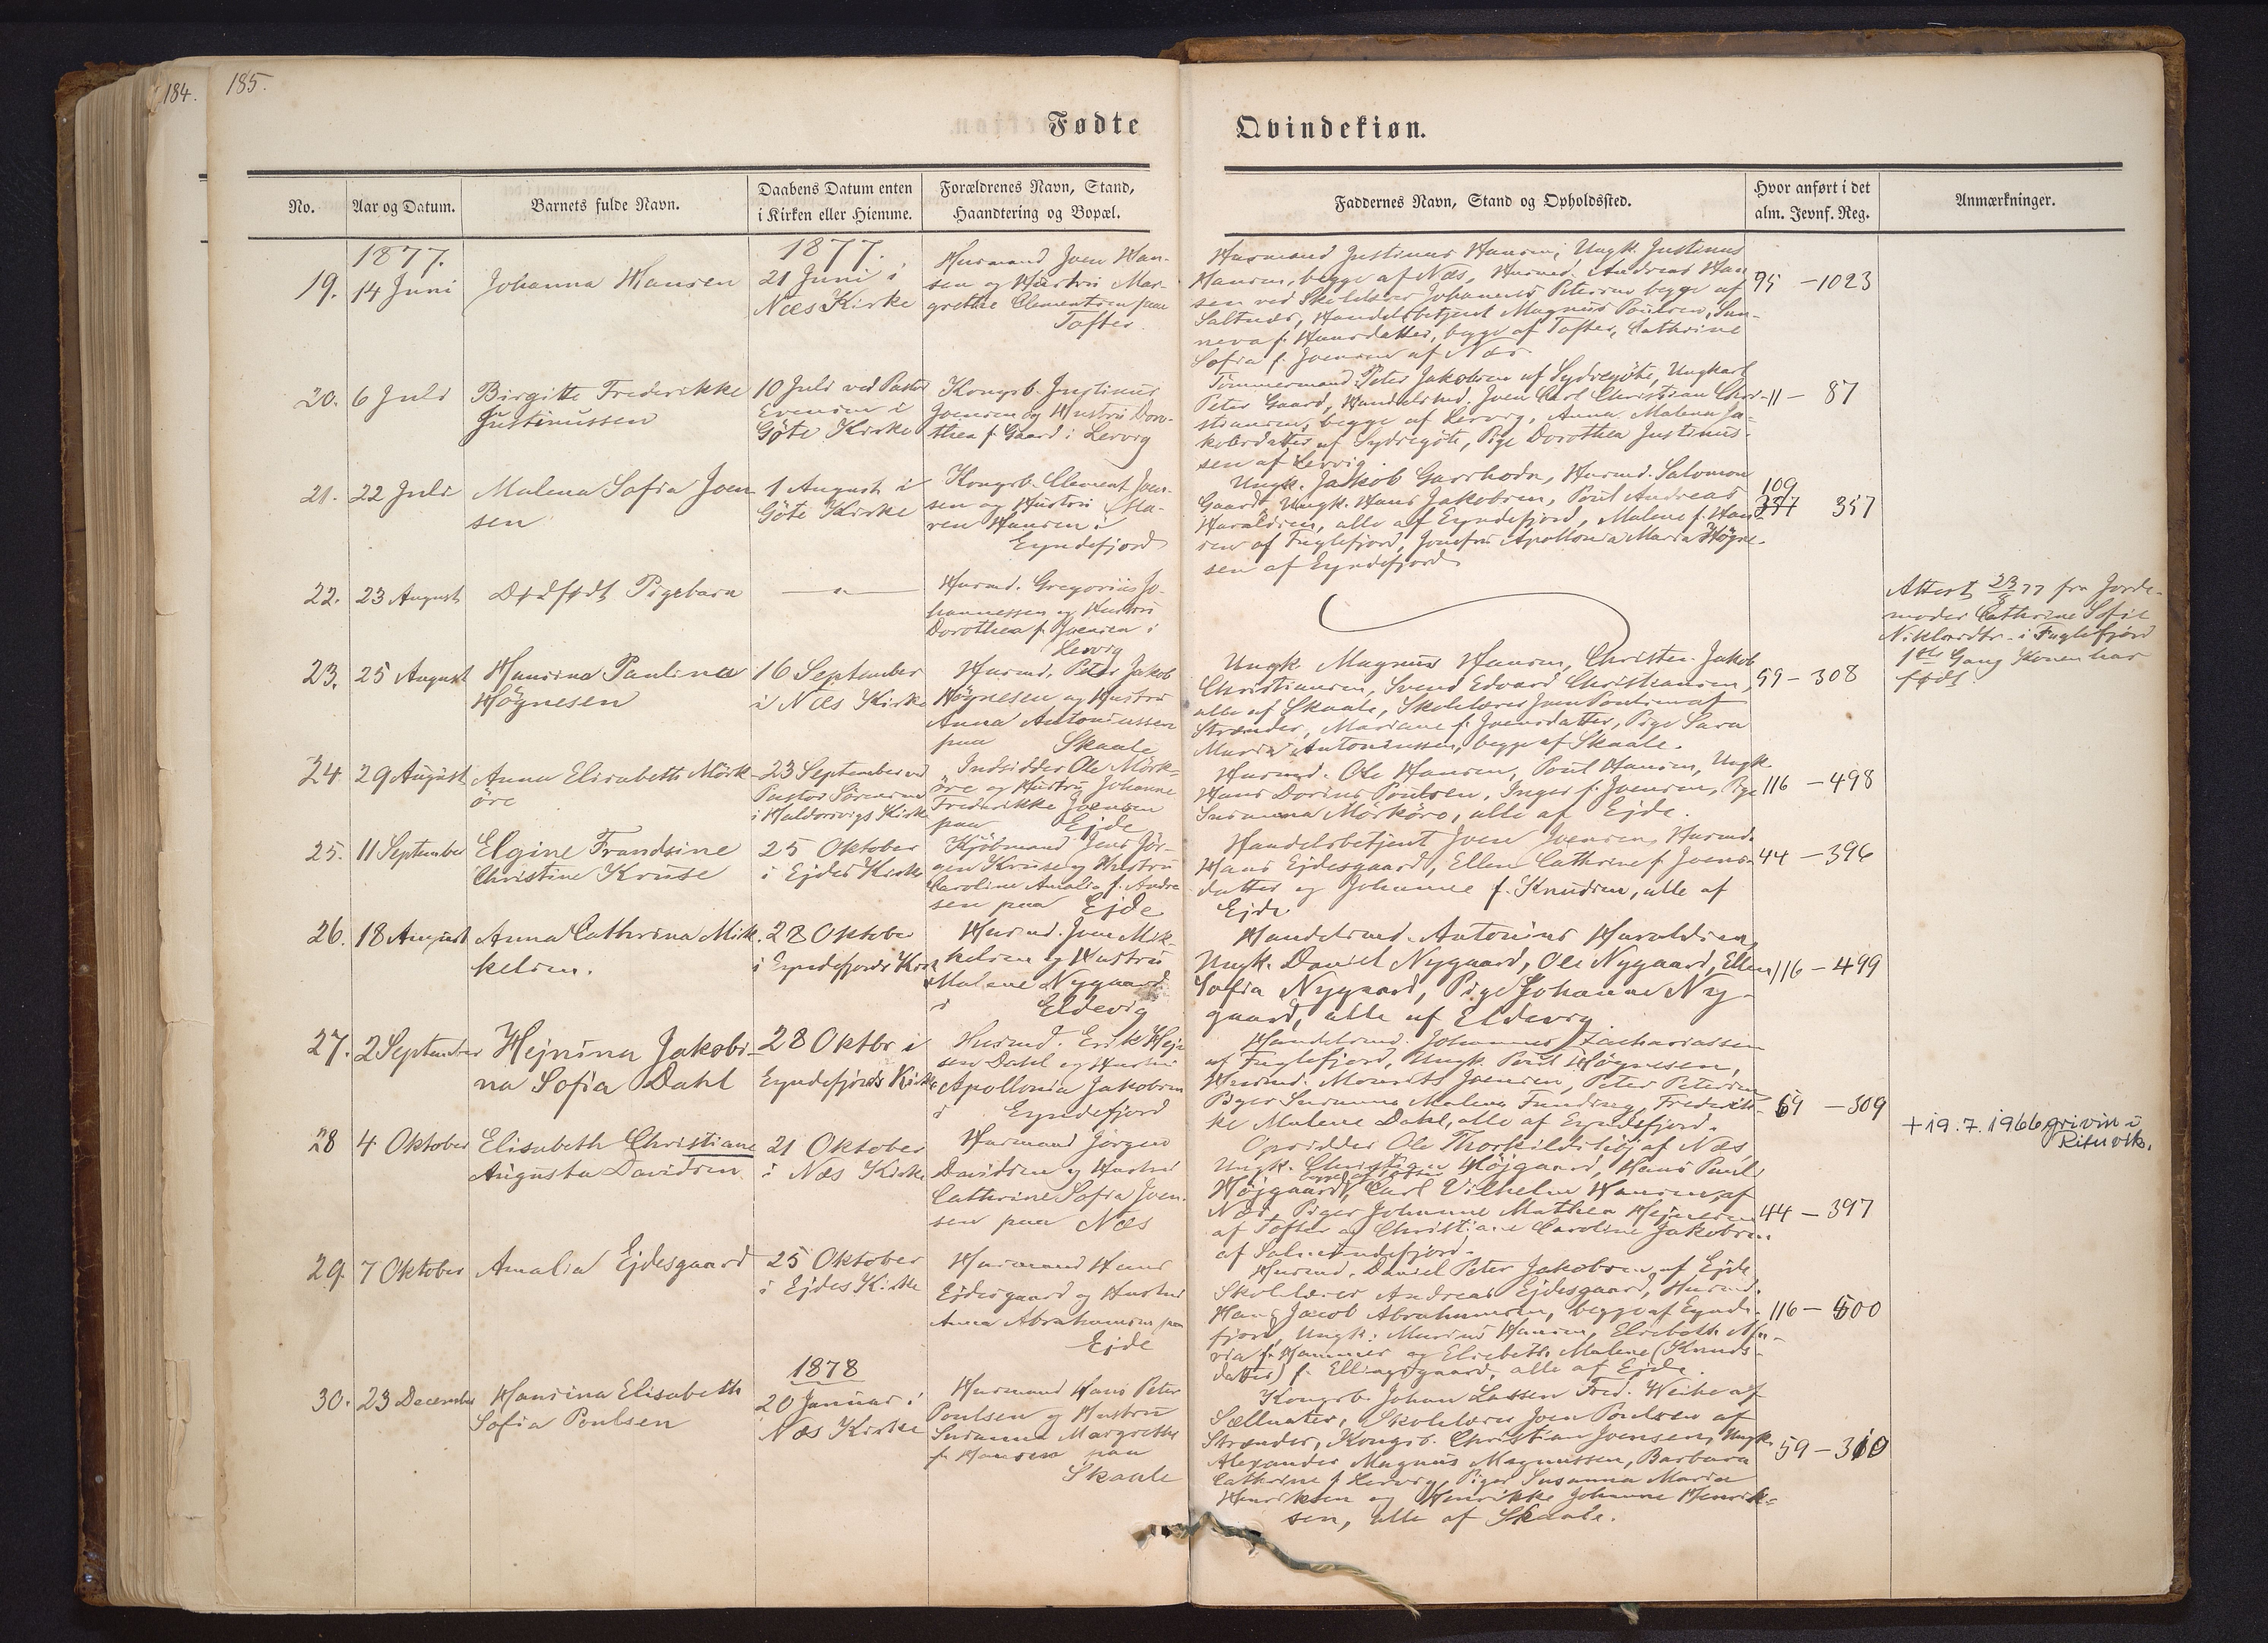 184.
185.
Fødte
Qvindekiøn.
No.
Aar og Datum.
Barnets fulde Navn.
Daabens Datum enten
i Kirken eller Hiemme.
Forældrenes Navn, Stand,
Haandtering og Bopæl.
Faddernes Navn, Stand og Opholdssted.
Hvor anført i det
alm. Jevnf. Reg.
Anmærkninger.
1877.
19.
14 Juni
Johanna Hansen
1877.
21 Juni i
Næs Kirke
Husmand Joen Han-
sen og Hustru Mar-
grethe Clementsen paa
Tofter.
Husmand Justinus Hansen, Ungk. Justinus
Hansen, begge af Næs, Husmd. Andreas Han
sen ved Skolelærer Johannes Petersen begge af
Saltnæs, Handelsbetjent Magnus Poulsen, Sun-
neva f. Hansdatter, begge af Tofter, Cathrine
Sofia f. Joensen af Næs.
95 - 1023
20.
6 Juli
Birgitte Frederikke
Justinussen
10 Juli ved Pastor
Evensen i
Göte Kirke
Kongsb. Justinus
Joensen og Hustru Doro-
thea f. Gaard i Lervig
Tömmermand Peter Jakobsen af Sydregöte, Ungkarl
Peter Gaard, Handelsmd. Joen Carl Christian Chri-
stiansen, begge af Lervig, Anna Malena Ja-
kobsdatter af Sydregöte, Pige Dorothea Justinus-
sen af Lervig.
11 - 87
21.
22 Juli
Malena Sofia Joen
sen
1 August i
Göte Kirke
Kongsb. Clement Joen-
sen og Hustru Ma-
ren Hansen i
Eyndefjord
Ungk. Jakob Garrhodn, Husmd. Salomon
Gaard, Ungk. Hans Jakobsen, Poul Andreas
Haraldsen, alle af Eyndefjord, Malene f. Han-
sen af Fuglefjord, Jomfru Apollonia Maria Högne-
sen af Eyndefjord
109
357
22.
23 August
Dødfødt Pigebarn
Husmd. Gregorius Jo-
hannessen og Hustru
Dorothea f. Joensen i
Lervig
Attest 23/8 77 fra Jorde-
moder Cathrine Sofie
Niklasdtr. i Fuglefjord
1ste Gang Konen har
født.
23.
25 August
Hansina Paulina
Högnesen
16 September
i Næs Kirke
Husmd. Peter Jakob
Högnesen og Hustru
Anna Antoniussen
paa Skaale
Ungk. Magnus Hansen, Christen Jakob
Christiansen, Svend Edvard Christiansen,
alle af Skaale, Skolelærer Joen Poulsen af
Strænder, Mariane f. Joensdatter, Pige Sara
Maria Antoniussen, begge af Skaale.
59 - 308
24.
29 August
Anna Elisabeth Mörk-
öre
23 September ved
Pastor Sörensen
i Haldorsvigs Kirke
Indsidder Ole Mörk-
öre og Hustru Johanne
Frederikke Joensen
paa Ejde
Husmd. Ole Hansen, Poul Hansen, Ungk.
Hans Dorius Poulsen, Inger f. Joensen, Pige
Susanna Mörköre, alle af Ejde.
116 - 498
25.
11 September
Elgine Frandsine
Christine Kruse
25 Oktober
i Ejdes Kirke
Kjöbmand Jens Jör-
gen Kruse og Hustru
Caroline Amalia f. Andre
sen paa Ejde
Handelsbetjent Joen Joensen, Husmd.
Hans Ejdesgaard, Ellen Cathrine f. Joens-
datter og Johanne f. Knudsen, alle af
Ejde
44 - 396
26.
18 August
Anna Cathrina Mik-
kelsen.
28 Oktober
i Eyndefjords Kirke
Husmd. Joen Mik-
kelsen og Hustru
Malene Nygaard
i Eldevig
Handelsmd. Antonius Haraldsen,
Ungk. Daniel Nygaard, Ole Nygaard, Ellen
Sofia Nygaard, Pige Johanna Ny-
gaard, alle af Eldevig.
116 - 499
27.
2 September
Hejnina Jakobi-
na Sofia Dahl
28 Oktbr i
Eyndefjords Kirke
Husmd. Erik Hejn
sen Dahl og Hustru
Apollonia Jakobsen
i Eyndefjord
Handelsmd. Johannes Zachariassen
af Fuglefjord, Ungk. Poul Högnesen,
Husmd. Mourits Joensen, Peter Petersen
Piger Susanna Malena Funding, Frederik-
ke Malene Dahl, alle af Eyndefjord.
59 - 309
28
4 Oktober
Elisabeth Christiane
Augusta Davidsen
21 Oktober
i Næs Kirke
Husmand Jörgen
Davidsen og Hustru
Cathrine Sofia Joen-
sen paa Næs
Opsidder Ole Thorkildshöj af Næs
Ungk. Christian Höjgaard, Hans Poul
begge af Tofter
Höjgaard, Carl Vilhelm Hansen, af
Næs, Piger Johanne Mathea Hejnesen
af Tofter og Christiane Caroline Jakobsen
af Salmundefjord.
44 - 397
+19.7.1966 grivin i
Rituvík.
29.
7 Oktober
Amalia Ejdesgaard
25 Oktober
i Ejdes Kirke
Husmand Hans
Ejdesgaard og Hustru
Anna Abrahamsen paa
Ejde
Husmd. Daniel Peter Jakobsen af Ejde
Skolelærer Andreas Ejdesgaard, Husmd.
Hans Jacob Abrahamsen, begge af Eynde-
fjord, Ungk. Marius Hansen, Elsebeth Ma-
ria f. Hammer og Elsebeth Malene (Knuds-
datter) f. Ellingsgaard, alle af Ejde.
116 - 500
30.
23 December
Hansina Elisabeth
Sofia Poulsen
1878
20 Januar i
Næs Kirke
Husmand Hans Peter
Poulsen og Hustru
Susanna Margrethe
f. Hansen paa
Skaale
Kongsb. Johan Lassen Fred. Weihe af
Sællnater, Skolelærer Joen Poulsen af
Strænder, Kongsb. Christian Joensen, Ungk.
Alexander Magnus Magnussen, Barbara
Cathrine f. Lervig, Piger Susanna Maria
Henriksen og Henrikke Johanne Henrik-
sen, alle af Skaale.
59 - 310